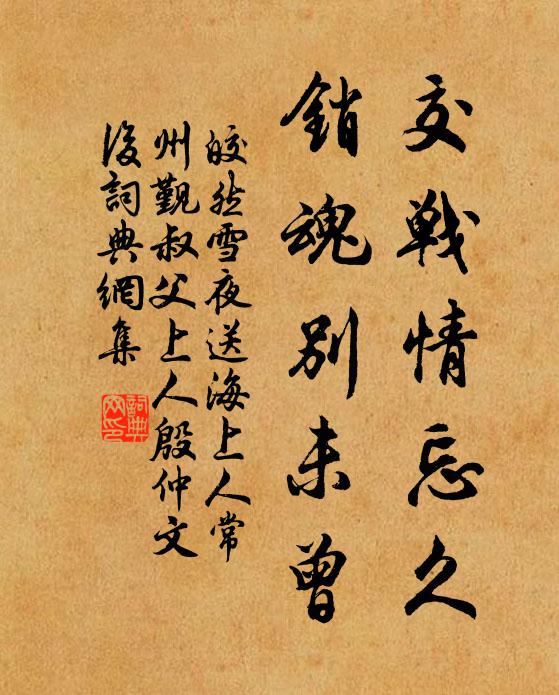 交戰情忘久
銷魂別未曾
皎然雪夜送海上人常
州覲叔父上人殷仲文
後詞典網集
詞典
網印